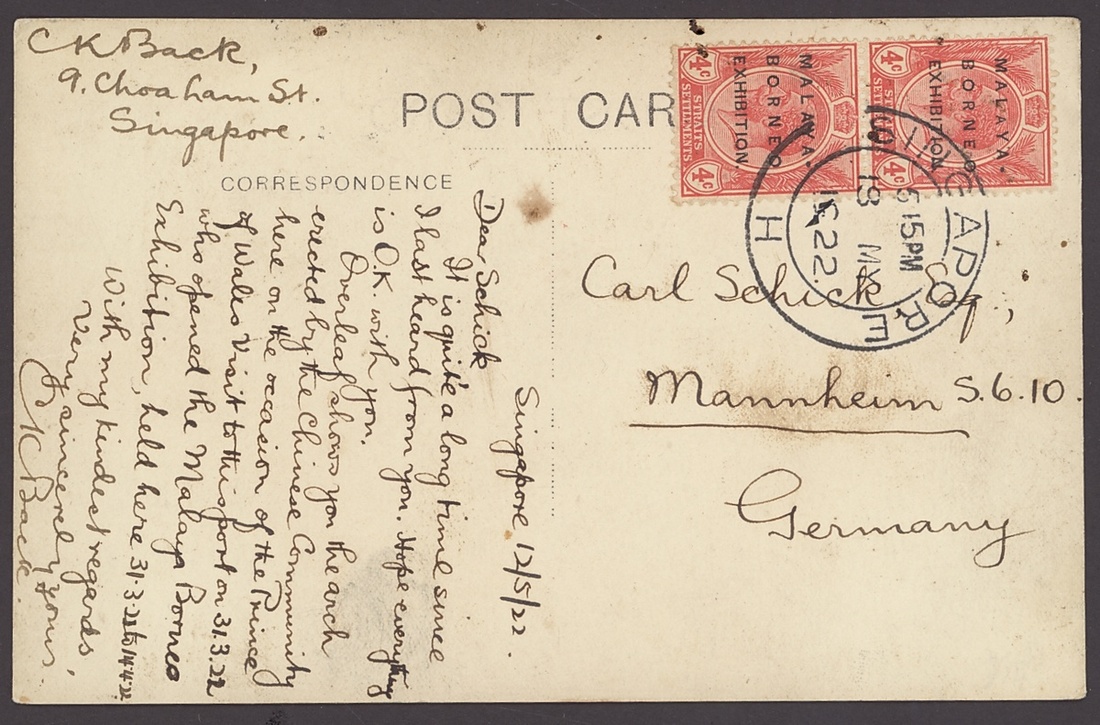 CK Back,
9. Choaham St.
Singapore.
POST CAR
CORRESPONDENCE
Singapore 12/5/22.
Dear Schick
It is quite a long time since
I last heard from you. Hope everything
is O.K. with you.
Overleaf shows you the arch
erected by the Chinese Community
here on the occasion of the Prince
of Wales Visit to this port on 31.3.22
who opened the Malaya Borneo
Exhibition, held here 31-3-22 to 14-4-22.
With my kindest regards,
Very sincerely yours.
CK Back.
4c
STRAITS
SETTLEMENTS
4c
MALAYA-
BORNEO
EXHIBITION.
4c
4c
MALAYA-
BORNEO
EXHIBITION.
APORE
H
5 15PM
18 MY
22
Carl Schick Esq.,
Mannheim S.6.10.
Germany